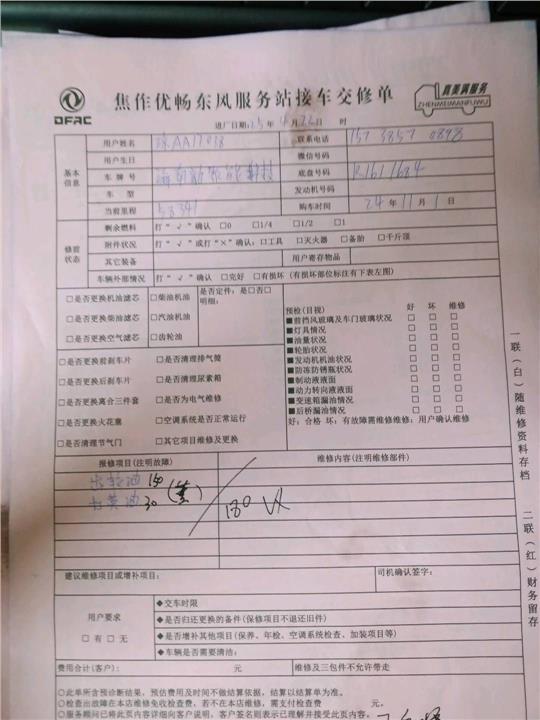 DFAC
焦作优畅东风服务站接车交修单
真美满服务
ZHENMEIMANFUWU
进厂日期: 25 年 4 月 22 日 时
基本信息
用户姓名 琼AA17018 联系电话 157 3857 0898
用户生日 微信号码
车牌号 底盘号码 R1611684
车型 发动机号码
当前里程 58341 购车时间 24 年 11 月 1 日
修前状态
剩余燃料 打“√”确认 □0 □1/4 □1/2 □1
附件状况 打“√”或打“×”确认: □工具 □灭火器 □备胎 □千斤顶
其它装备 用户寄存物品
车辆外部情况 打“√”确认 □完好 □有损坏 (有损坏部位标注有下表左图)
□是否更换机油滤芯 □柴油机油 是否定件: 是□否□
明细:
□是否更换柴油滤芯 □汽油机油
□是否更换空气滤芯 □齿轮油
预检(目视) 好 坏 维修
■前挡风玻璃及车门玻璃状况 □ □ □
■灯具情况 □ □ □
■油量状况 □ □ □
■轮胎状况 □ □ □
■发动机机油状况 □ □ □
■防冻防锈瓶状况 □ □ □
■制动液液面 □ □ □
■动力转向液液面 □ □ □
■变速箱漏油情况 □ □ □
■后桥漏油情况 □ □ □
好: 合格 坏: 有故障需维修维修: 用户确认维修
□是否更换前刹车片 □是否清理排气筒
□是否更换后刹车片 □是否清理尿素箱
□是否更换离合三件套 □是否为电气维修
□是否更换火花塞 □空调系统是否正常运行
□是否清理节气门 □其它项目维修及更换
报修项目(注明故障) 维修内容(注明维修部件)
齿轮油 150
黄油 30
180 VX
建议维修项目或增补项目: 司机确认签字:
用户要求
□有 □无
◆交车时限
◆是否归还更换的备件(保修项目不退还旧件)
◆是否增补其他项目(保养、年检、空调系统检查、加装项目等)
◆车辆是否需要清洁:
费用合计(客户): 元 维修及三包件不允许带走
○此单所含预诊断结果, 预估费用及时间不做结算依据, 结算以结算单为准。
○检查出故障在本店维修免收检查费, 若不在本店维修, 需支付检查费 元。
○服务顾问已将此页内容详细向客户说明, 客户签名则表示已理解并接受此页内容。
一联(白)随维修资料存档
二联(红)财务留存